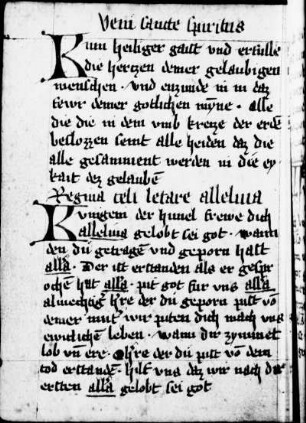 Veni sancte spiritus
Kum heiliger gaist vnd erfulle
die hertzen deiner gelaubigen
menschen · vnd enzunde in in daz
fewr deiner gotlichen myne · alle
die die in dem vmb kreize der erde
beslozzen seint alle heiden daz die
alle gesamment werden in die ey
kait dez gelaubē
Regina celi letare alleluia
Kungein der himel frewe dich
alleluia gelobt sei got · wann
den du getragē vnd geporn hast
alla · Der ist erstanden als er gespr
ochē hat alla · pit got fur vns alla
almechtigʼ hʼre der du geporn pist vō
deiner mut wir piten dich mach vns
ewiclichē leben · wann dir zymmet
lob vn̄ ere · O hʼre der du pist vō dem
tod erstandē · hilf vns daz wir nach dir
ersten alla gelobt sei got